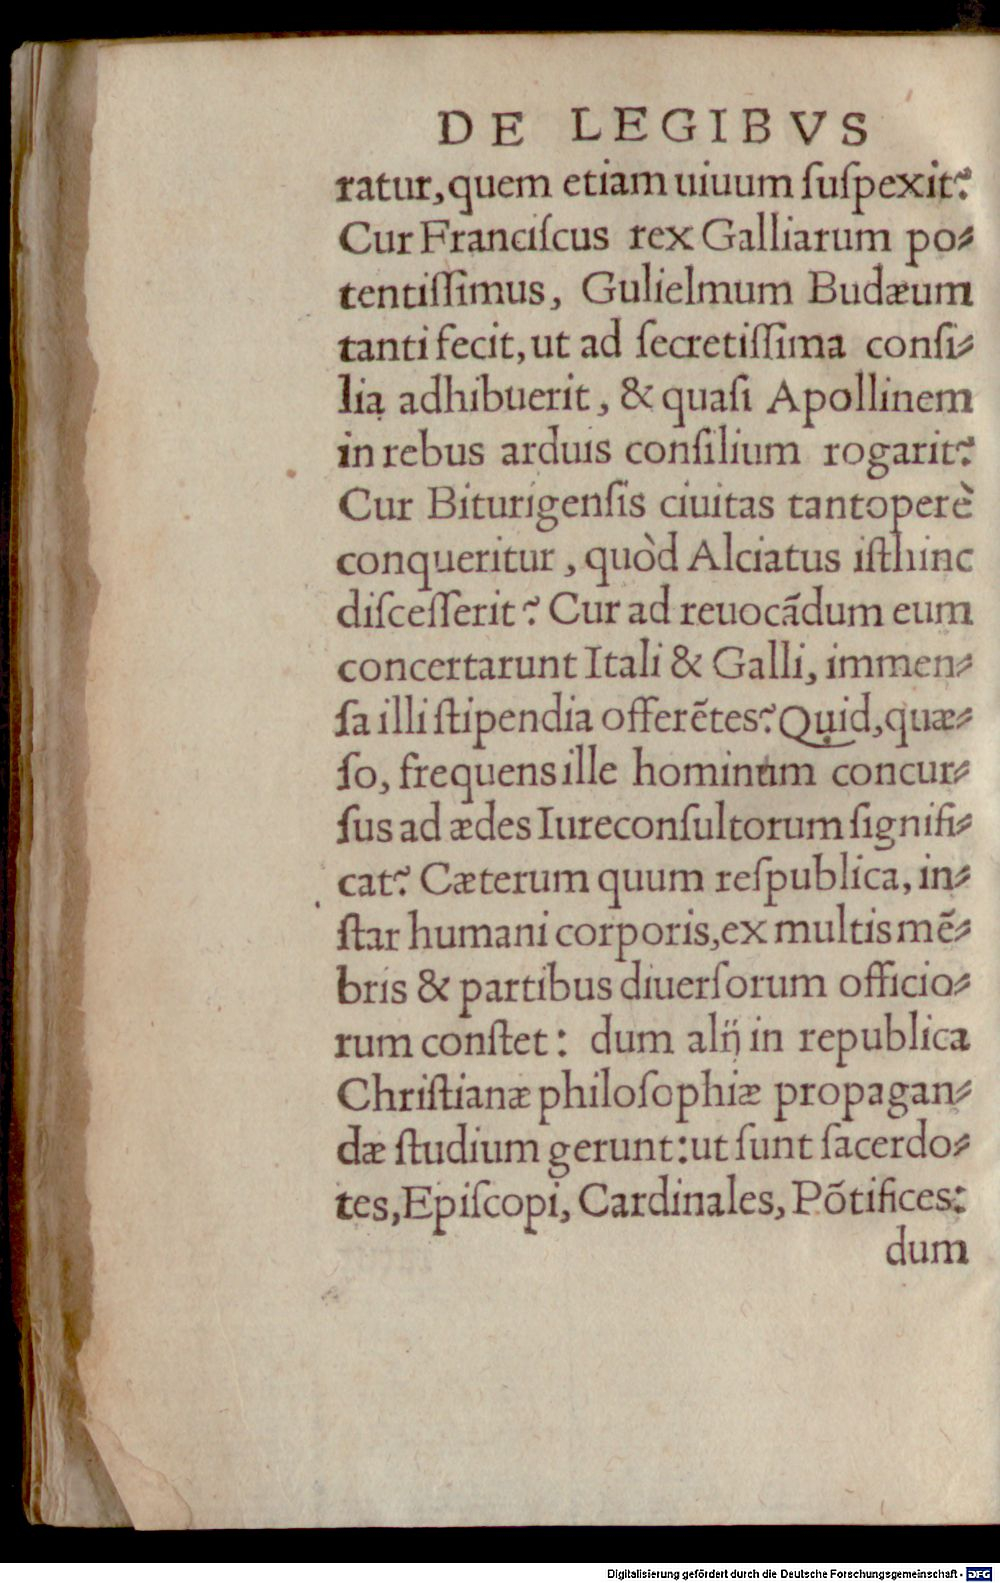 DE LEGIBVS
ratur, quem etiam uiuum ſuſpexit?
Cur Franciſcus rex Galliarum po⸗
tentiſſimus, Gulielmum Budæum
tanti fecit, ut ad ſecretiſſima conſi⸗
lia adhibuerit, & quaſi Apollinem
in rebus arduis conſilium rogarit?
Cur Biturigenſis ciuitas tantoperè
conqueritur, quòd Alciatus iſthinc
diſceſſerit? Cur ad reuocãdum eum
concertarunt Itali & Galli, immen⸗
ſa illi ſtipendia offerẽtes? Quid, quæ⸗
ſo, frequens ille hominum concur⸗
ſus ad ædes Iureconſultorum ſignifi⸗
cat? Cæterum quum reſpublica, in⸗
ſtar humani corporis, ex multis mẽ⸗
bris & partibus diuerſorum officio⸗
rum conſtet: dum alij in republica
Chriſtianæ philoſophiæ propagan⸗
dæ ſtudium gerunt: ut ſunt ſacerdo⸗
tes, Epiſcopi, Cardinales, Põtifices:
dum
Digitalisierung gefördert durch die Deutsche Forschungsgemeinschaft - DFG